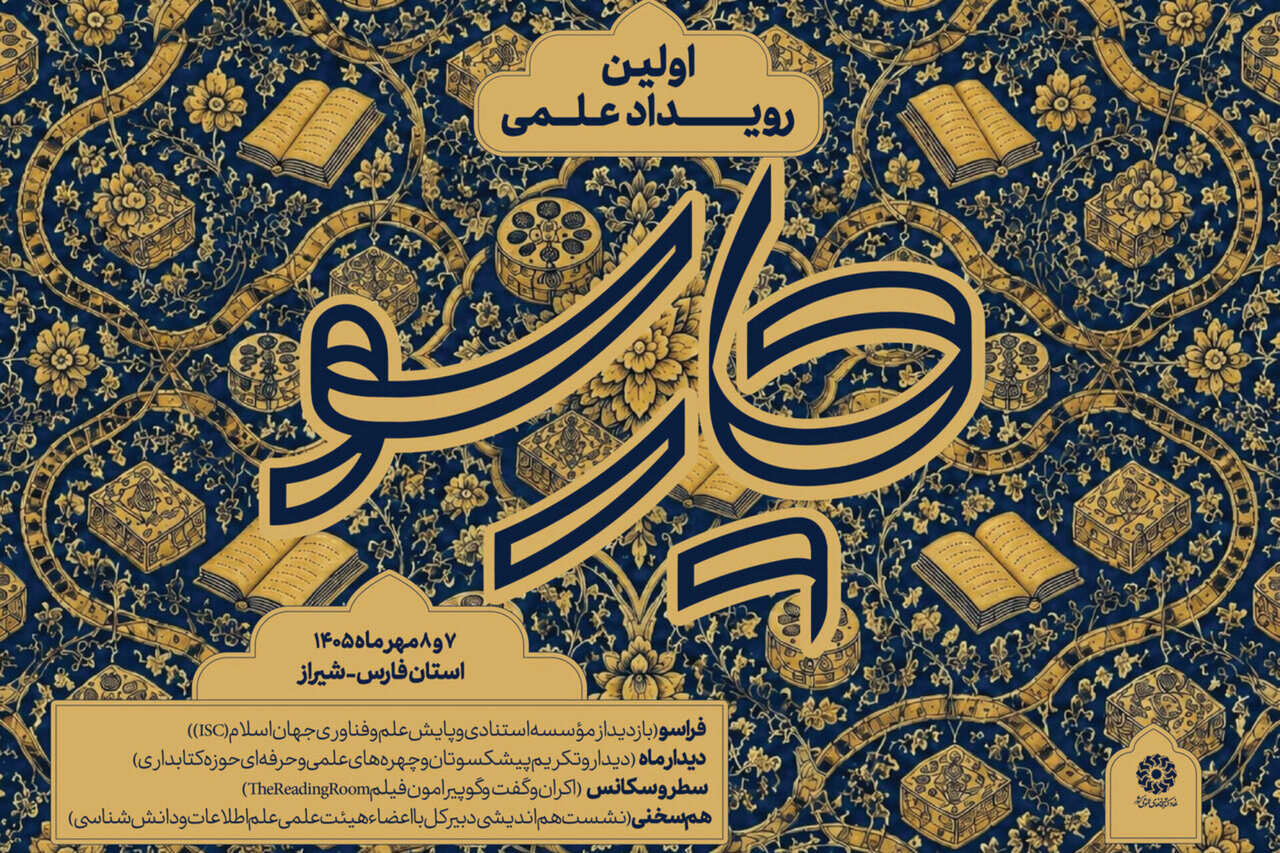 اولین
رویداد علمی
پارسو
۷ و ۸ مهر ماه ۱۴۰۵
استان فارس - شیراز
فراسو (بازدید از مؤسسه استنادی و پایش علم و فناوری جهان اسلام (ISC))
دیدار ماه (دیدار و تکریم پیشکسوتان و چهره‌های علمی و حرفه‌ای حوزه کتابداری)
سطر و سکانس (اکران و گفت و گو پیرامون فیلم TheReadingRoom)
هم‌سخنی (نشست هم‌اندیشی دبیرکل با اعضاء هیئت علمی علم اطلاعات و دانش‌شناسی)